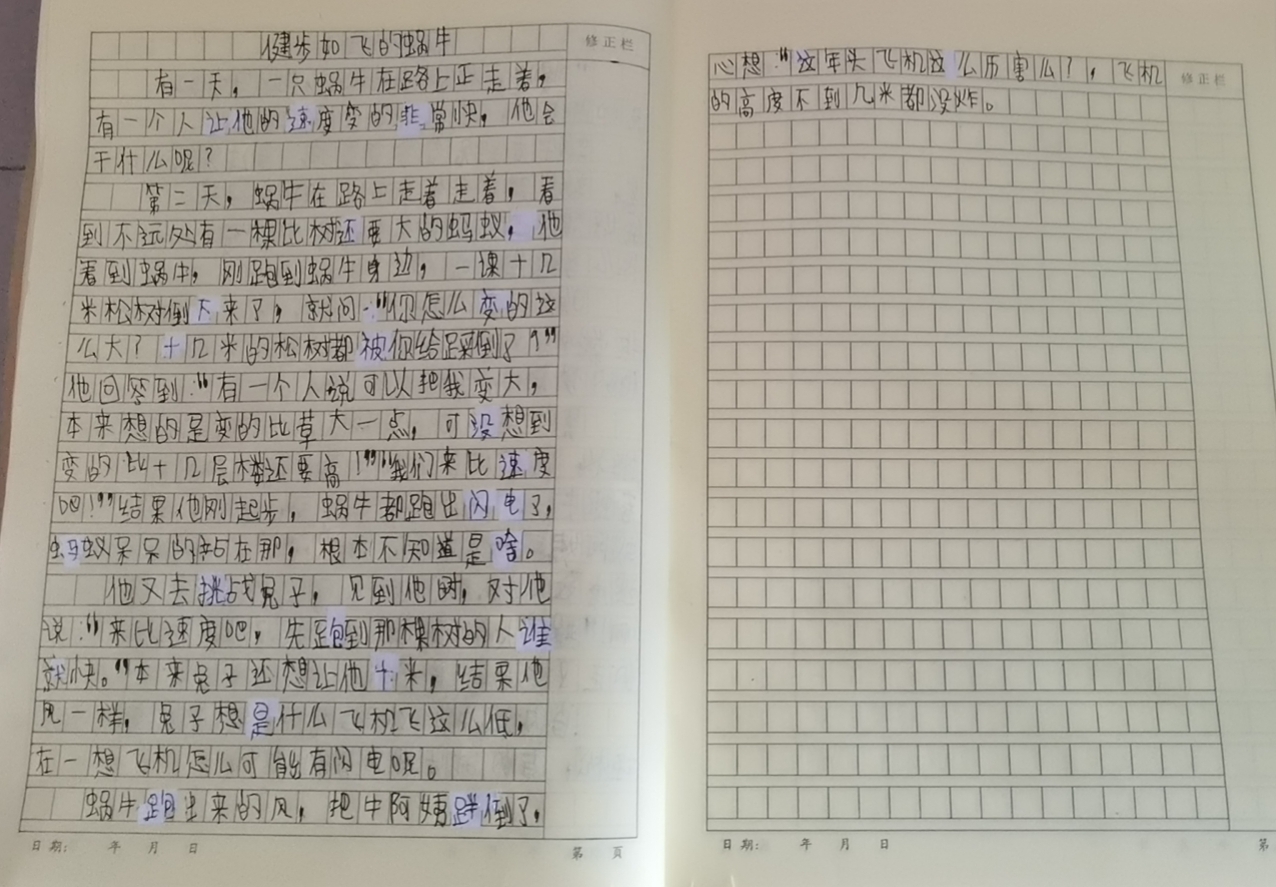 健步如飞的蜗牛
修正栏
有一天，一只蜗牛在路上正走着，
有一个人让他的速度变的非常快，他会
干什么呢？
第二天，蜗牛在路上走着走着，看
到不远处有一棵比树还要大的蚂蚁，他
看到蜗牛，刚跑到蜗牛身边，一课十几
米松树倒下来了，就问："你怎么变的这
么大？十几米的松树都被你给踩倒了？"
他回答到："有一个人说可以把我变大，
本来想的是变的比草大一点，可没想到
变的比十几层楼还要高！""我们来比速度
吧！"结果他刚起步，蜗牛都跑出闪电了，
蚂蚁呆呆的站在那，根本不知道是啥。
他又去挑战兔子，见到他时，对他
说："来比速度吧，先跑到那棵树的人谁
就快。"本来兔子还想让他十米，结果他
风一样，兔子想是什么飞机飞这么低，
在一想飞机怎么可能有闪电呢。
蜗牛跑出来的风，把牛阿姨跘倒了，
日期： 年 月 日
第 页
心想："这年头飞机这么历害么？，飞机
修正栏
的高度不到几米都没炸。
日期： 年 月 日
第